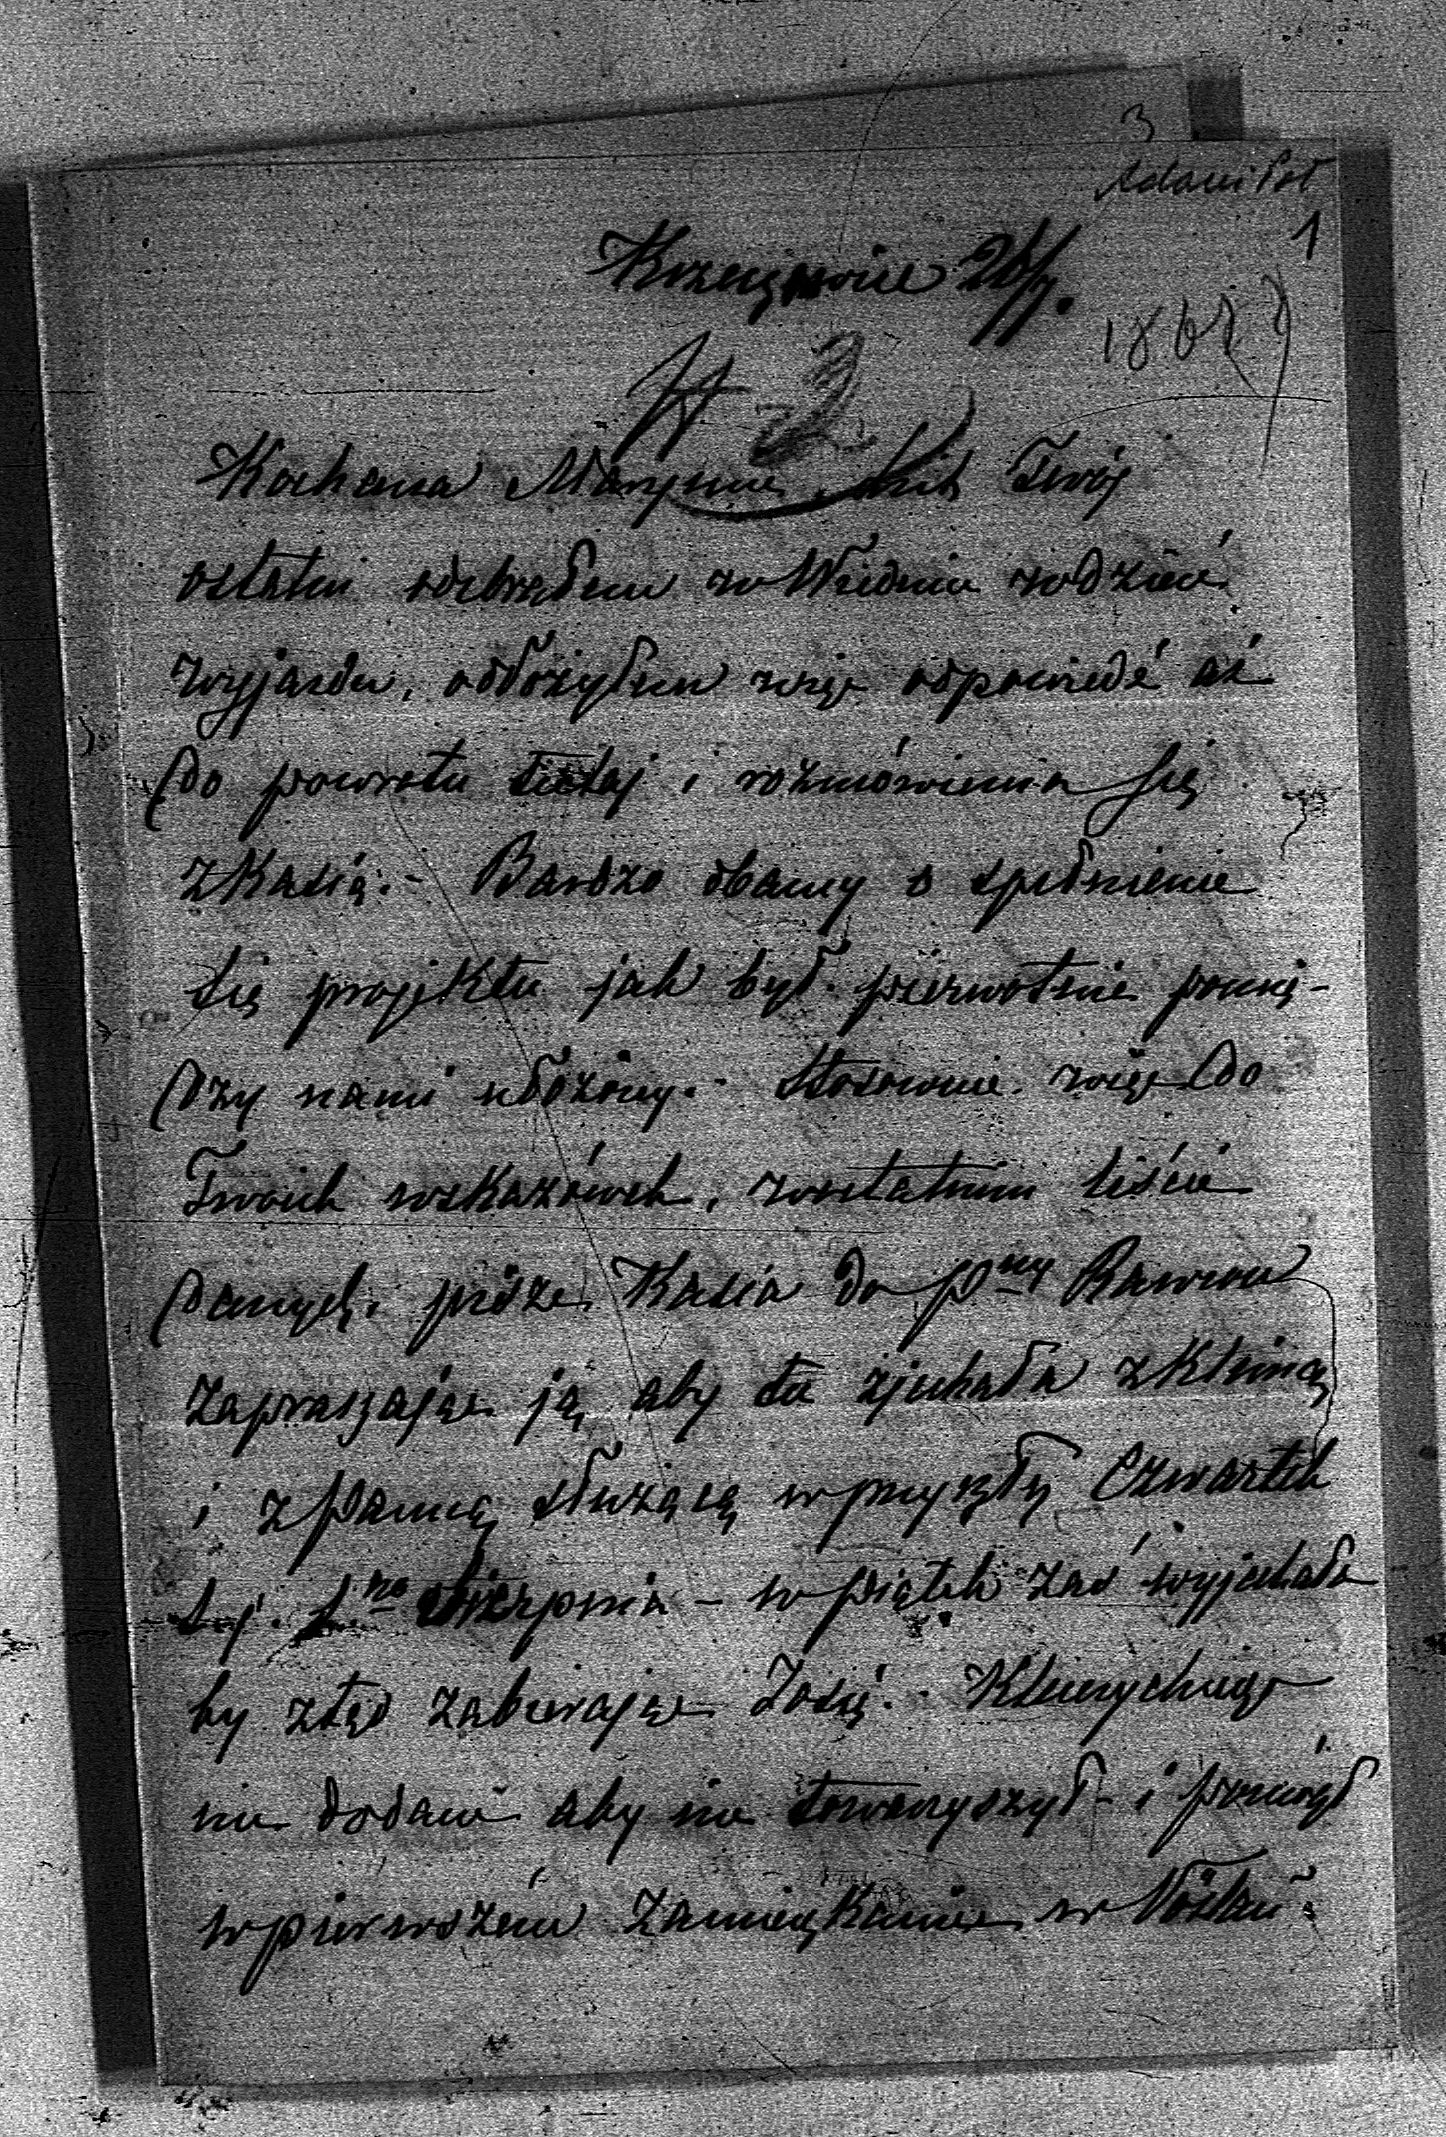 3
Adam Pot
1
Krzeszowice 26/7.
186
Kochana Maryniu, List Twój
ostatni odebrałem w Wiedniu w dzień
wyjazdu, odłożyłem więc odpowiedź aż
do powrotu tutaj i rozmówienia się
z Kasią. - Bardzo dbamy o spełnienie
się projektu jak był pierwotnie pomię-
dzy nami ułożony. Stosownie więc do
Twoich wskazówek, w ostatnim liście
danych, pisze Kasia do pny
zapraszając ją aby tu zjechała z
i z Panną służącą w przyszły Czwartek
t. j. 1.go Sierpnia - w piątek zaś wyjechała
by ztąd zabierając Zosię.
nie dodani aby im towarzyszył i pomógł
w pierwszém zamieszkaniu w